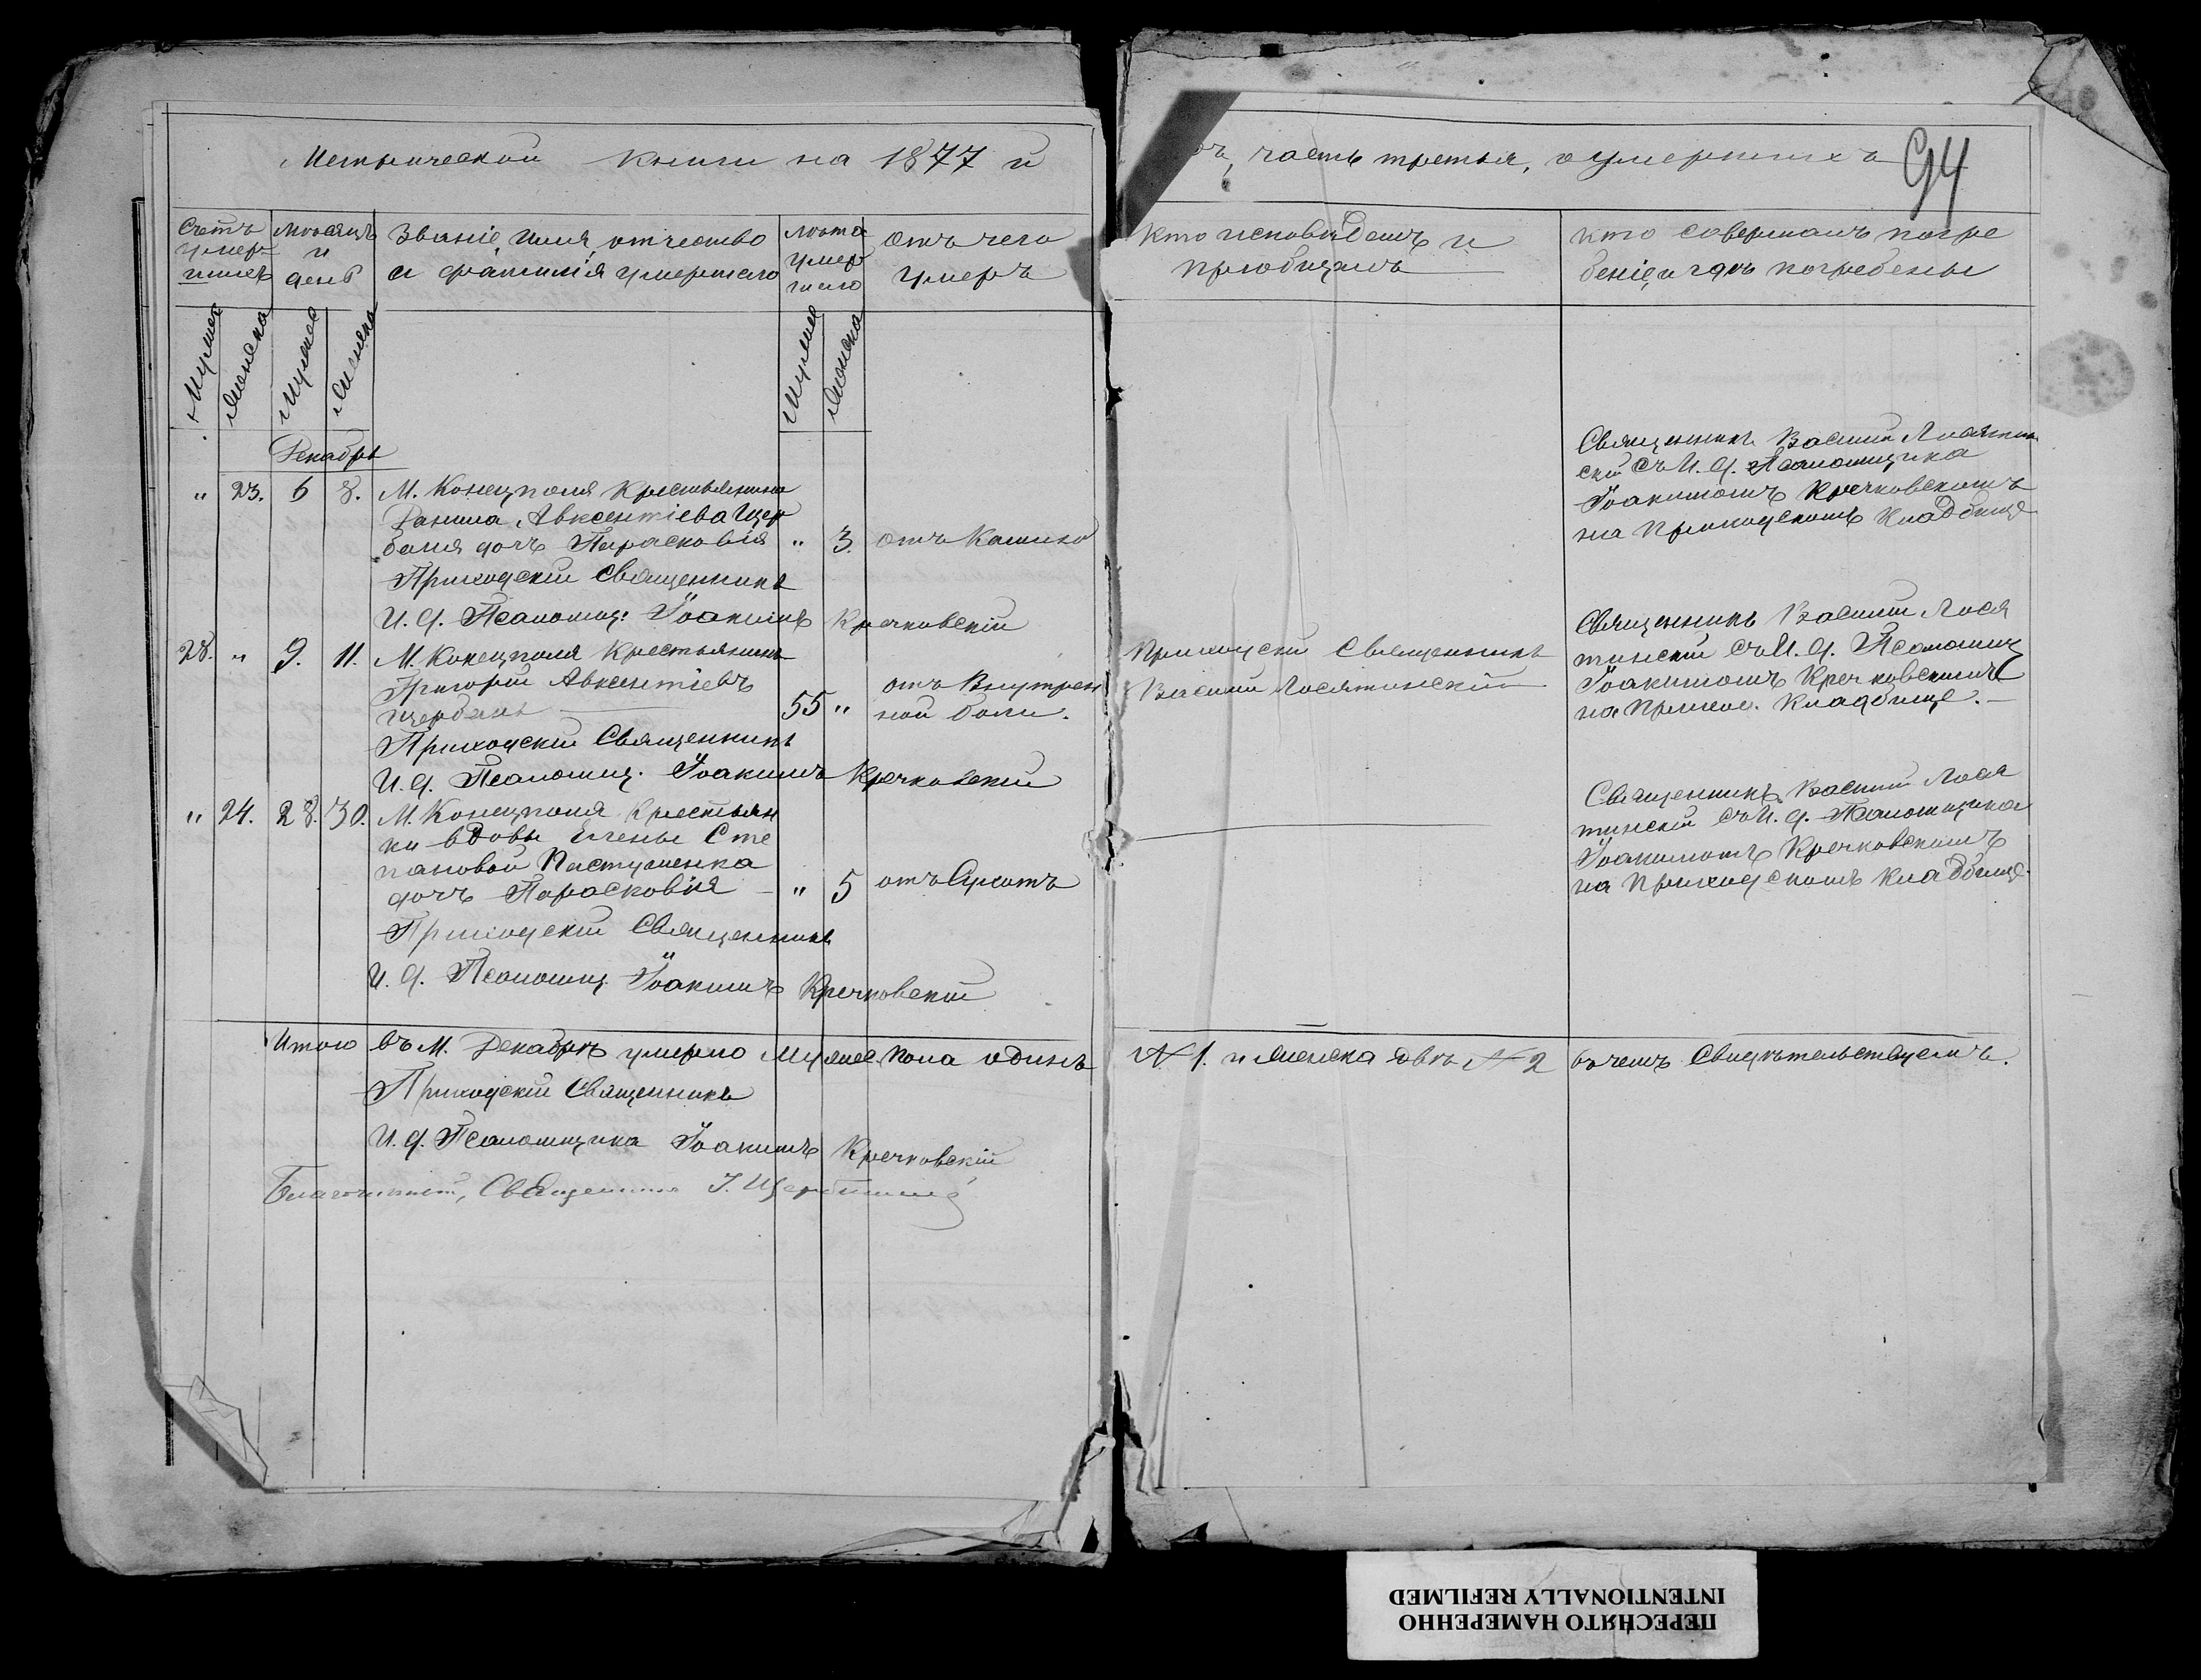 Метрической книги на 1877 й
ъ, часть третья, о умершихъ
94
Счетъ умер- шихъ
Мѣсяцъ и день
Званіе, имя, отчество и фамилія умершаго
Лѣта умер шаго
Отъ чего умеръ
Кто исповѣдалъ и пріобщалъ
Кто совершалъ погре беніе и гдѣ погребены
Мужеск
Женска
Мужеск
Женска
Мужеск
Женска
Декабрь
" 23. 6 8. М. Конецполя Крестьянина
Данила Авксентіева Щер
баня дочь Парасковія " 3. отъ Кашлю
Приходскій Священникъ
И. д. Псаломщ: Іоакимъ Кречковскій
Священникъ Василій Лосятин
скій съ И. д. Псаломщика
Іоакимомъ Кречковскимъ
на Приходскомъ Кладбище
28. " 9. 11. М. Конецполя Крестьянинъ
Григорій Авксентіевъ
Щербань 55 " отъ Внутрен
ной боли.
Приходскій Священникъ
И. д. Псаломщ. Іоакимъ Кречковскій
Приходскій Священникъ
Василій Лосятинскій
Священникъ Василій Лося
тинскій съ И. д. Псаломщ
Іоакимомъ Кречковскимъ
на Приход. Кладбище.
" 24. 28. 30. М. Конецполя Крестьян
ки вдовы Елены Сте
пановой Пастушенка
дочь Парасковія " 5 отъ Сухотъ
Приходскій Священникъ
И. д. Псаломщ. Іоакимъ Кречковскій
Священникъ Василій Лося
тинскій съ И. д. Псаломщика
Іоакимомъ Кречковскимъ
на Приходскомъ кладбище.
Итого въ М. Декабрѣ умерло Мужес. пола одинъ № 1. и женска двѣ № 2 въ чемъ Свидѣтельствуемъ.
Приходскій Священникъ
И. д. Псаломщика Іоакимъ Кречковскій
Благочинный, Священникъ І.
ПЕРЕСНЯТО НАМЕРЕННО
INTENTIONALLY REFILMED